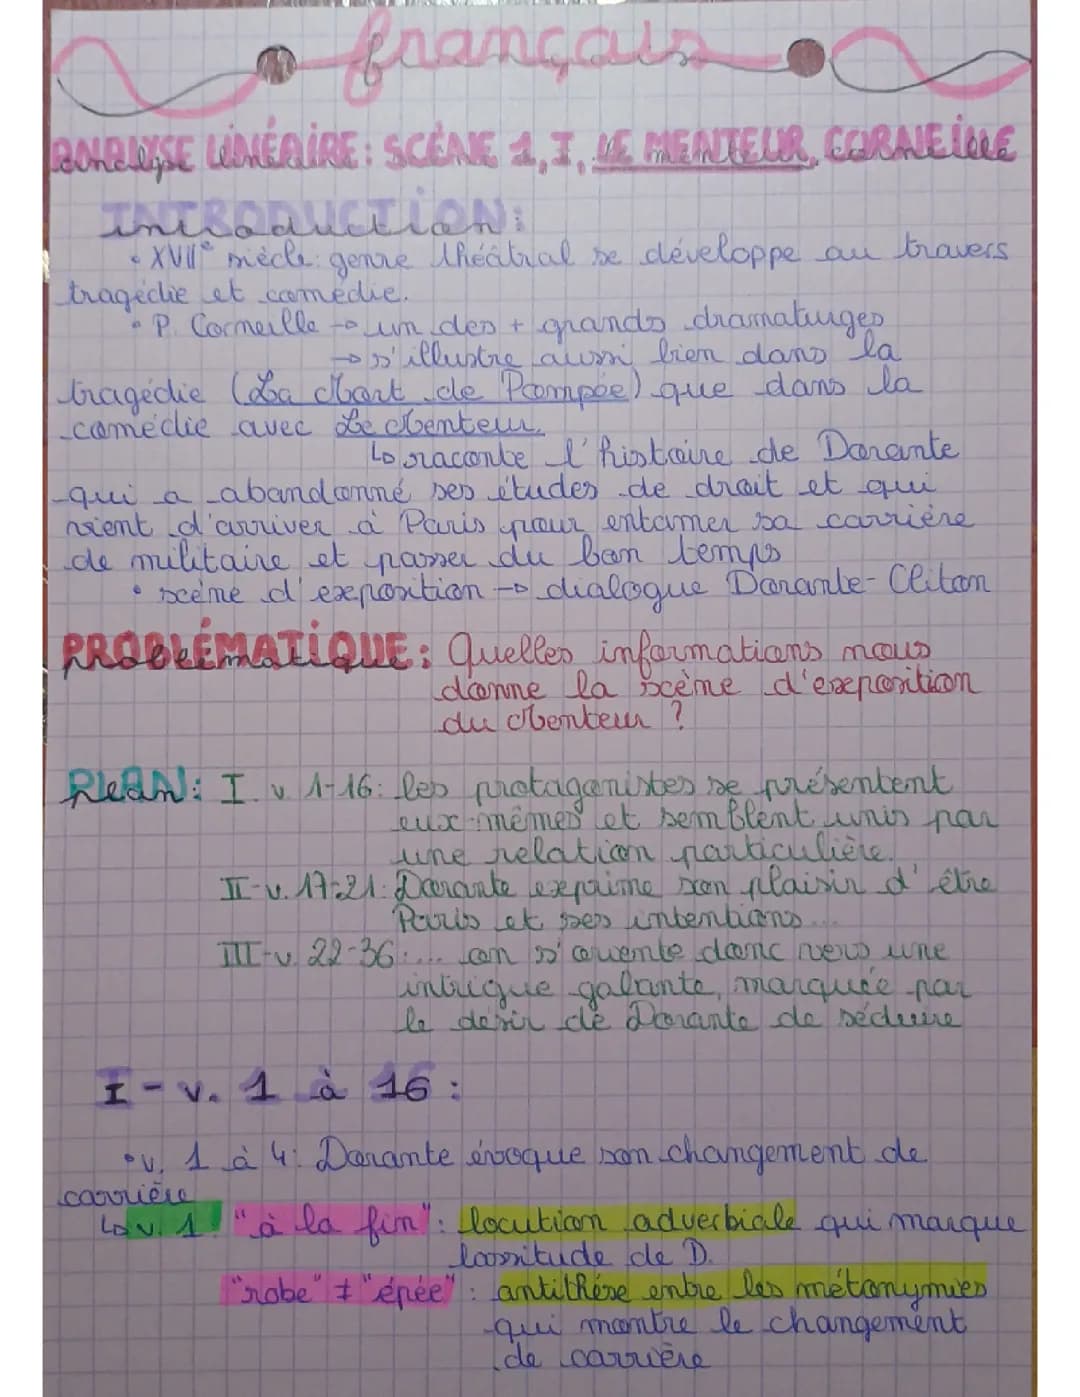 français
analyse linéaire : scène 1, I, Le menteur, Corneille
INTRODUCTION :
• XVIIᵉ siècle : genre théâtral se développe au travers
tragédie et comédie.
• P. Corneille → un des + grands dramaturges
→ s'illustre aussi bien dans la
tragédie (La Mort de Pompée) que dans la
comédie avec Le Menteur.
↳ raconte l'histoire de Dorante
qui a abandonné ses études de droit et qui
vient d'arriver à Paris pour entamer sa carrière
de militaire et passer du bon temps
• scène d'exposition → dialogue Dorante-Cliton
PROBLÉMATIQUE : Quelles informations nous
donne la scène d'exposition
du Menteur ?
PLAN : I. v. 1-16 : les protagonistes se présentent
eux-mêmes et semblent unis par
une relation particulière.
II-v. 17-21 : Dorante exprime son plaisir d'être
Paris et ses intentions...
III-v. 22-36 : ... on s'oriente donc vers une
intrigue galante, marquée par
le désir de Dorante de séduire
I - v. 1 à 16 :
• v. 1 à 4 : Dorante évoque son changement de
carrière
↳ v. 1 : "à la fin" : locution adverbiale qui marque
lassitude de D.
"robe" ≠ "épée" : antithèse entre les métonymies
qui montre le changement
de carrière